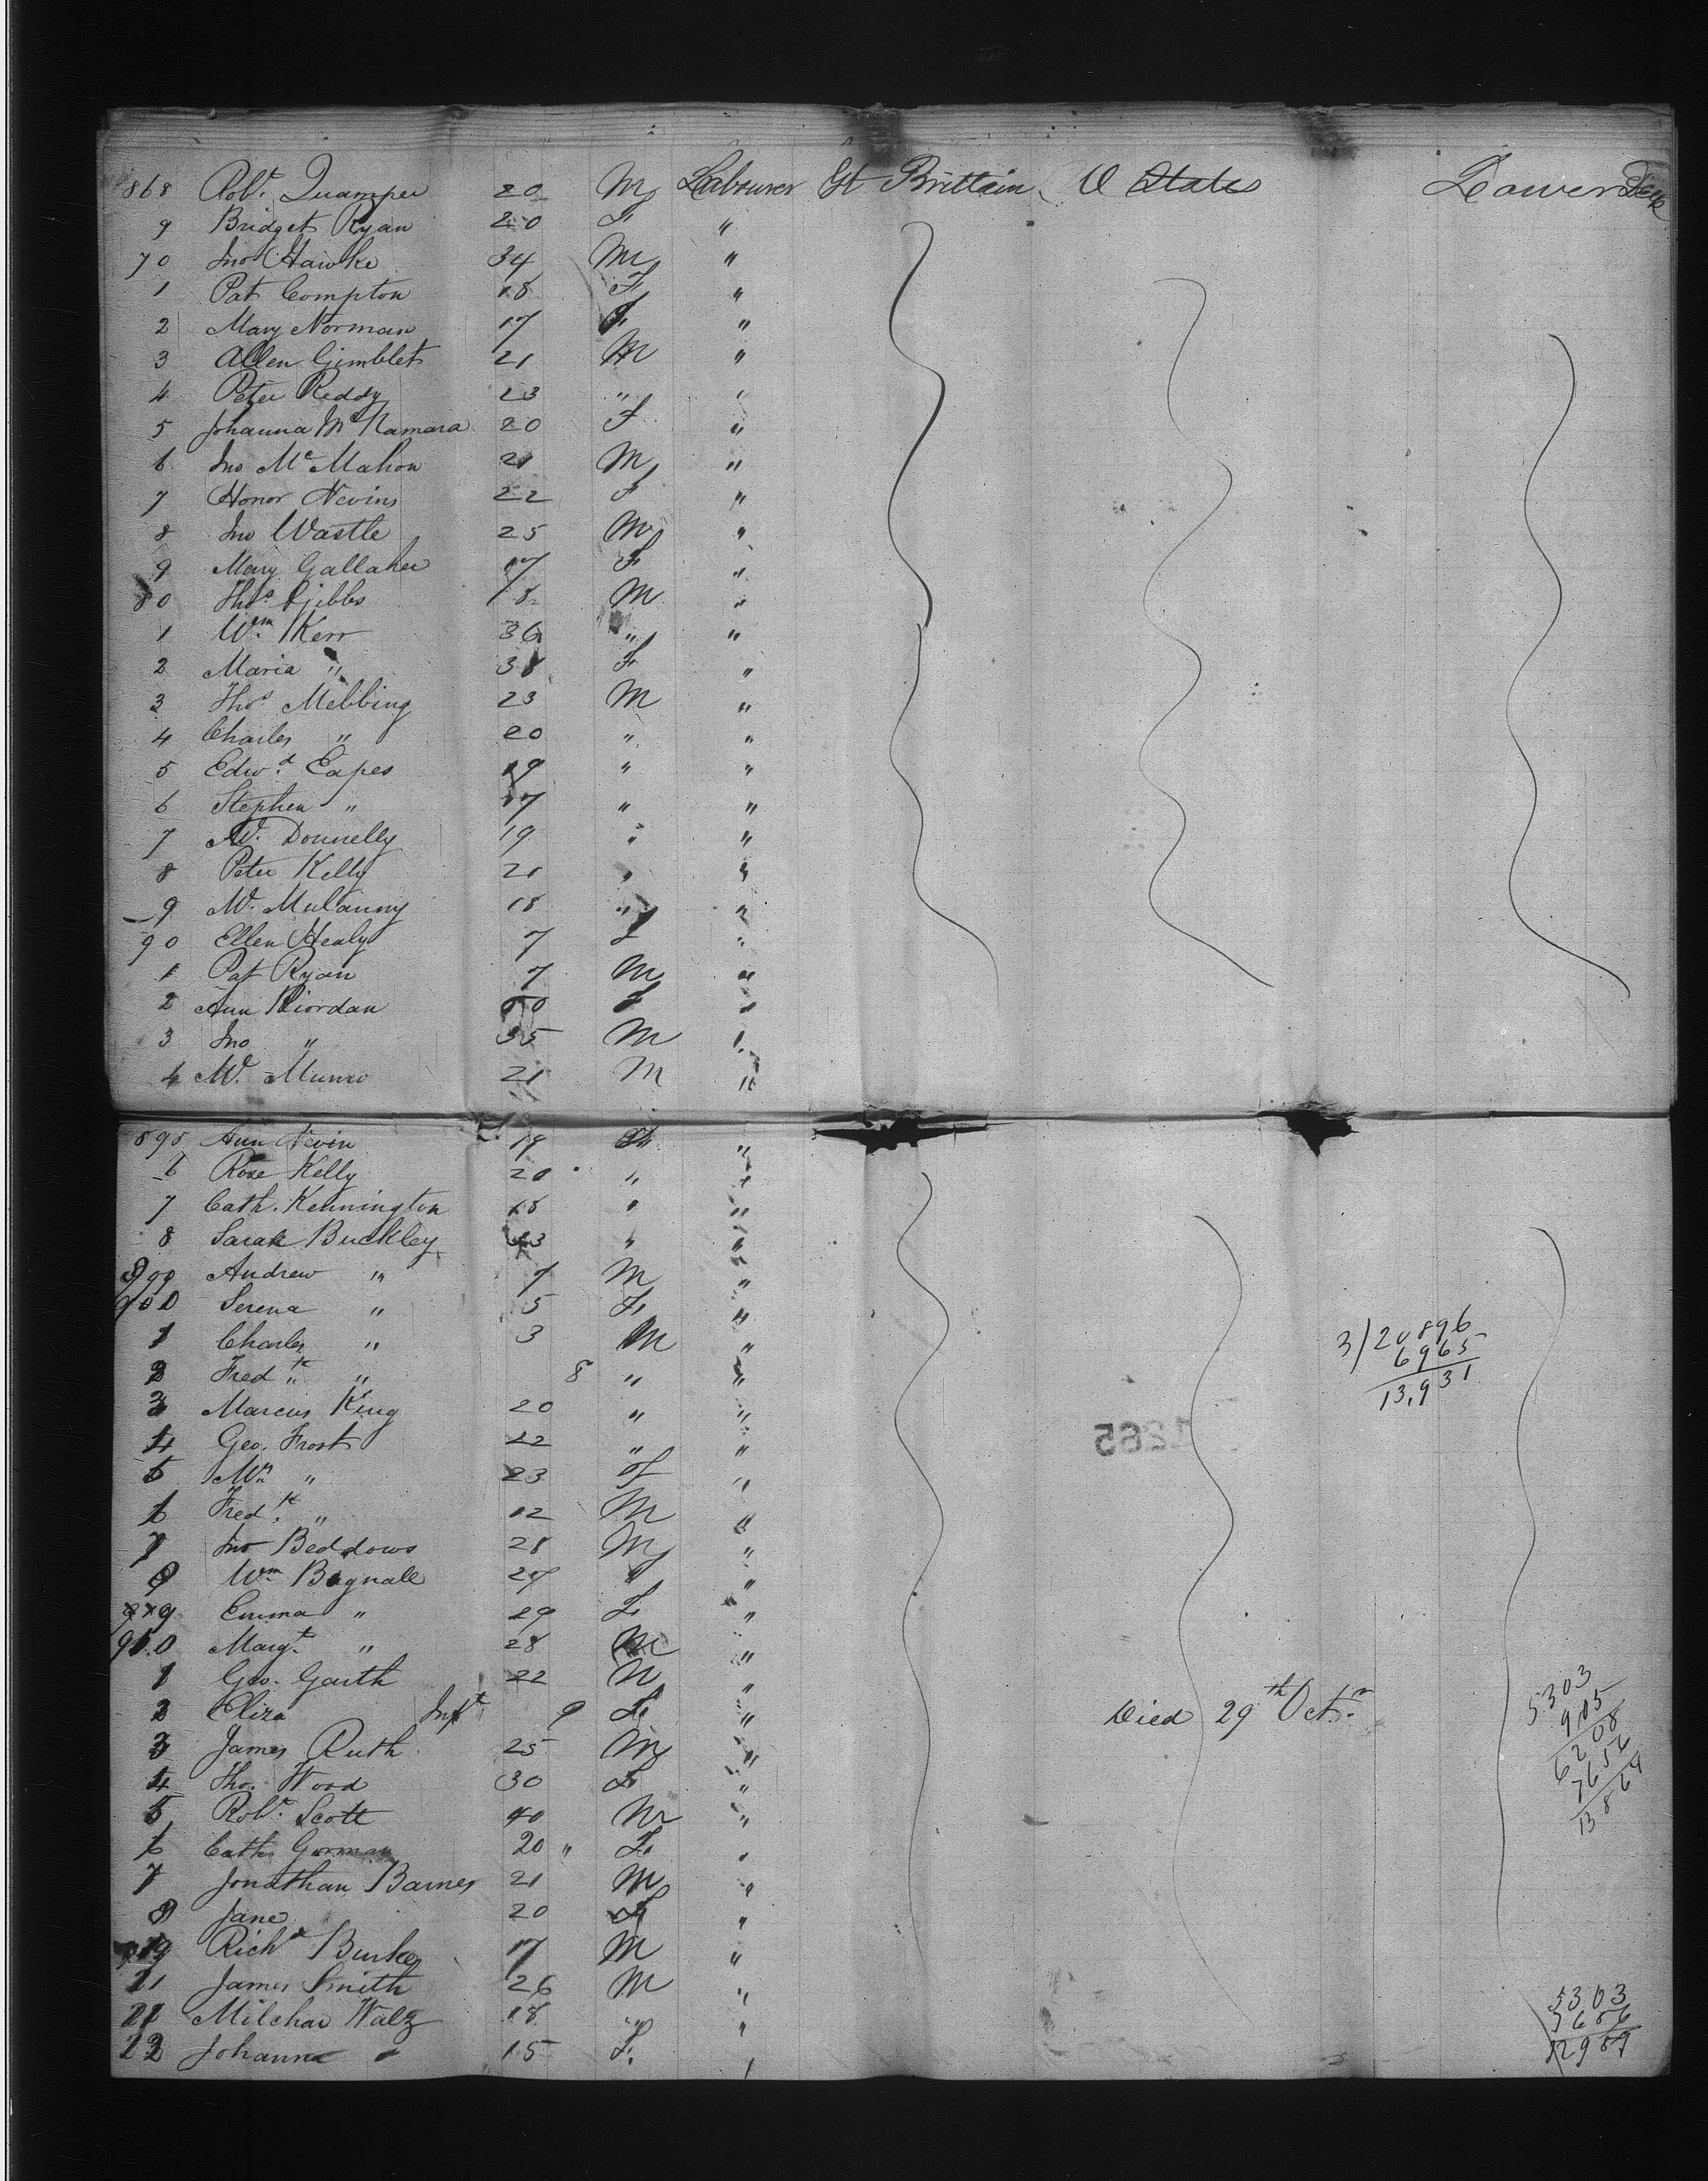 868 Robt. Quamper 20 M Labourer Gt Brittain U States Lower Deck
9 Bridget Ryan 20 F "
70 Jno Hawke 34 M "
1 Pat Compton 18 F "
2 Mary Norman 17 F "
3 Allen Gimblet 21 M "
4 Peter Reddy 23 " "
5 Johanna McNamara 20 F "
6 Jno McMahon 21 M "
7 Honor Nevins 22 F "
8 Jno Wastle 25 M "
9 Mary Gallaher 17 F "
80 Thos. Gibbs 18 M "
1 Wm. Kerr 36 " "
2 Maria " 38 F "
3 Thos. Mebbing 23 M "
4 Charles " 20 " "
5 Edwd. Eapes 19 " "
6 Stephen " 17 " "
7 W. Donnelly 19 " "
8 Peter Kelly 21 " "
9 W. Mulanny 18 " "
90 Ellen Healy 7 F "
1 Pat Ryan 7 M "
2 Ann Riordan 50 F "
3 Jno " 35 M "
4 W. Munro 21 M "
895 Ann Nevin 19 F "
6 Rose Kelly 20 " "
7 Cath. Kennington 18 " "
8 Sarah Buckley 43 " "
899 Andrew " 7 M "
900 Serena " 5 F "
1 Charles " 3 M "
2 Fredk " 8 " "
3 Marcus King 20 " "
4 Geo. Frost 22 " "
5 Mrs " 23 F "
6 Fredk. " 12 M "
7 Jno Beddows 28 M "
8 Wm Bagnall 27 " "
9 Emma " 29 F "
910 Margt. " 28 "
1 Geo. Garth 22 M "
2 Eliza Inft 9 F " Died 29th Octr.
3 James Ruth 25 M "
4 Tho. Wood 30 F "
5 Robt. Scott 40 M "
6 Cath Gorman 20 " F "
7 Jonathan Barnes 21 M "
8 Jane 20 F "
19 Richd Burke 17 M "
21 James Smith 26 M "
21 Milchar Walz 18 " "
22 Johanna " 15 F. "
3/20896
6965
13,931
1265
5303
905
6208
7656
13864
5303
7686
12989